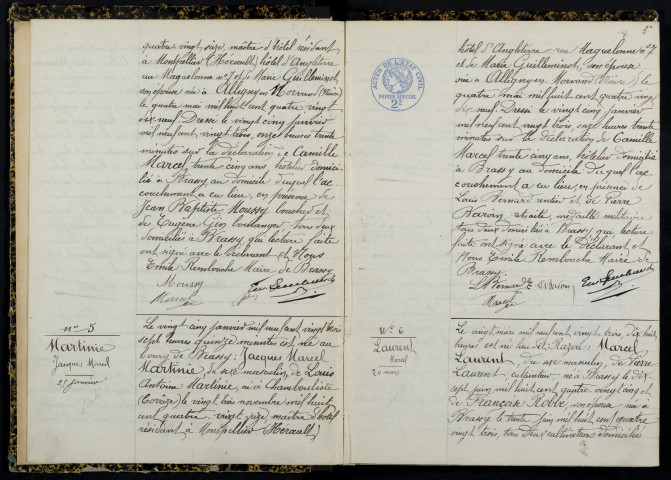 quatre vingt seize, maître d'hôtel résidant
à Montpellier (Hérault) hôtel d'Angleterre
rue Maguelonne n°7 et de Marie Guilleminot,
son épouse née à Alligny en Morvand (Nièvre)
le quatre mai mil huit cent quatre vingt
dix neuf Dressé le vingt cinq janvier
mil neuf cent vingt trois, onze heures trente
minutes sur la déclaration de Camille
Marcel trente cinq ans, hôtelier domici-
lié à Brassy au domicile duquel l'ac-
couchement a eu lieu, en présence de
Jean Baptiste Moussy boucher et
de Eugène Gin boulanger tous deux
domiciliés à Brassy qui lecture faite
ont signé avec le déclarant et Nous
Emile Rembouche Maire de Brassy
Moussy
Marcel
n° 5
Martinie
Jacques Marcel
25 janvier
Le vingt cinq janvier mil neuf cent vingt trois
sept heures quinze minutes est né au
bourg de Brassy: Jacques Marcel
Martinie, du sexe masculin, de Louis
Antoine Martinie, né à Chamboulive
(Corrèze) le vingt trois novembre mil huit
cent quatre-vingt seize maître d'hôtel
résidant à Montpellier (Hérault)
5
ACTES DE L'ÉTAT CIVIL
PAPIER SPÉCIAL
2F
hôtel d'Angleterre rue Maguelonne n°7
et de Marie Guilleminot, son épouse
née à Alligny en Morvand (Nièvre) le
quatre mai mil huit cent quatre vingt
dix neuf Dressé le vingt cinq janvier
mil neuf cent vingt trois, onze heures trente
minutes sur la déclaration de Camille
Marcel trente cinq ans, hôtelier domicilié
à Brassy au domicile duquel l'ac-
couchement a eu lieu, en présence de
Louis Bernard rentier et de Pierre
Baron, retraité, médaillé militaire
tous deux domiciliés à Brassy, qui lecture
faite ont signé avec le Déclarant et
Nous Emile Rembouche Maire de
Brassy.
L. Bernard Baron
Marcel
N° 6
Laurent
Marcel
20 mars
Le vingt mars mil neuf cent vingt trois, dix huit
heures est né au dit Razou: Marcel
Laurent, du sexe masculin, de Pierre
Laurent, cultivateur né à Brassy le dix
sept juin mil huit cent quatre vingt cinq et
de Françoise Robbe son épouse née à
Brassy le trente juin mil huit cent quatre
vingt trois, tous deux cultivateurs domiciliés